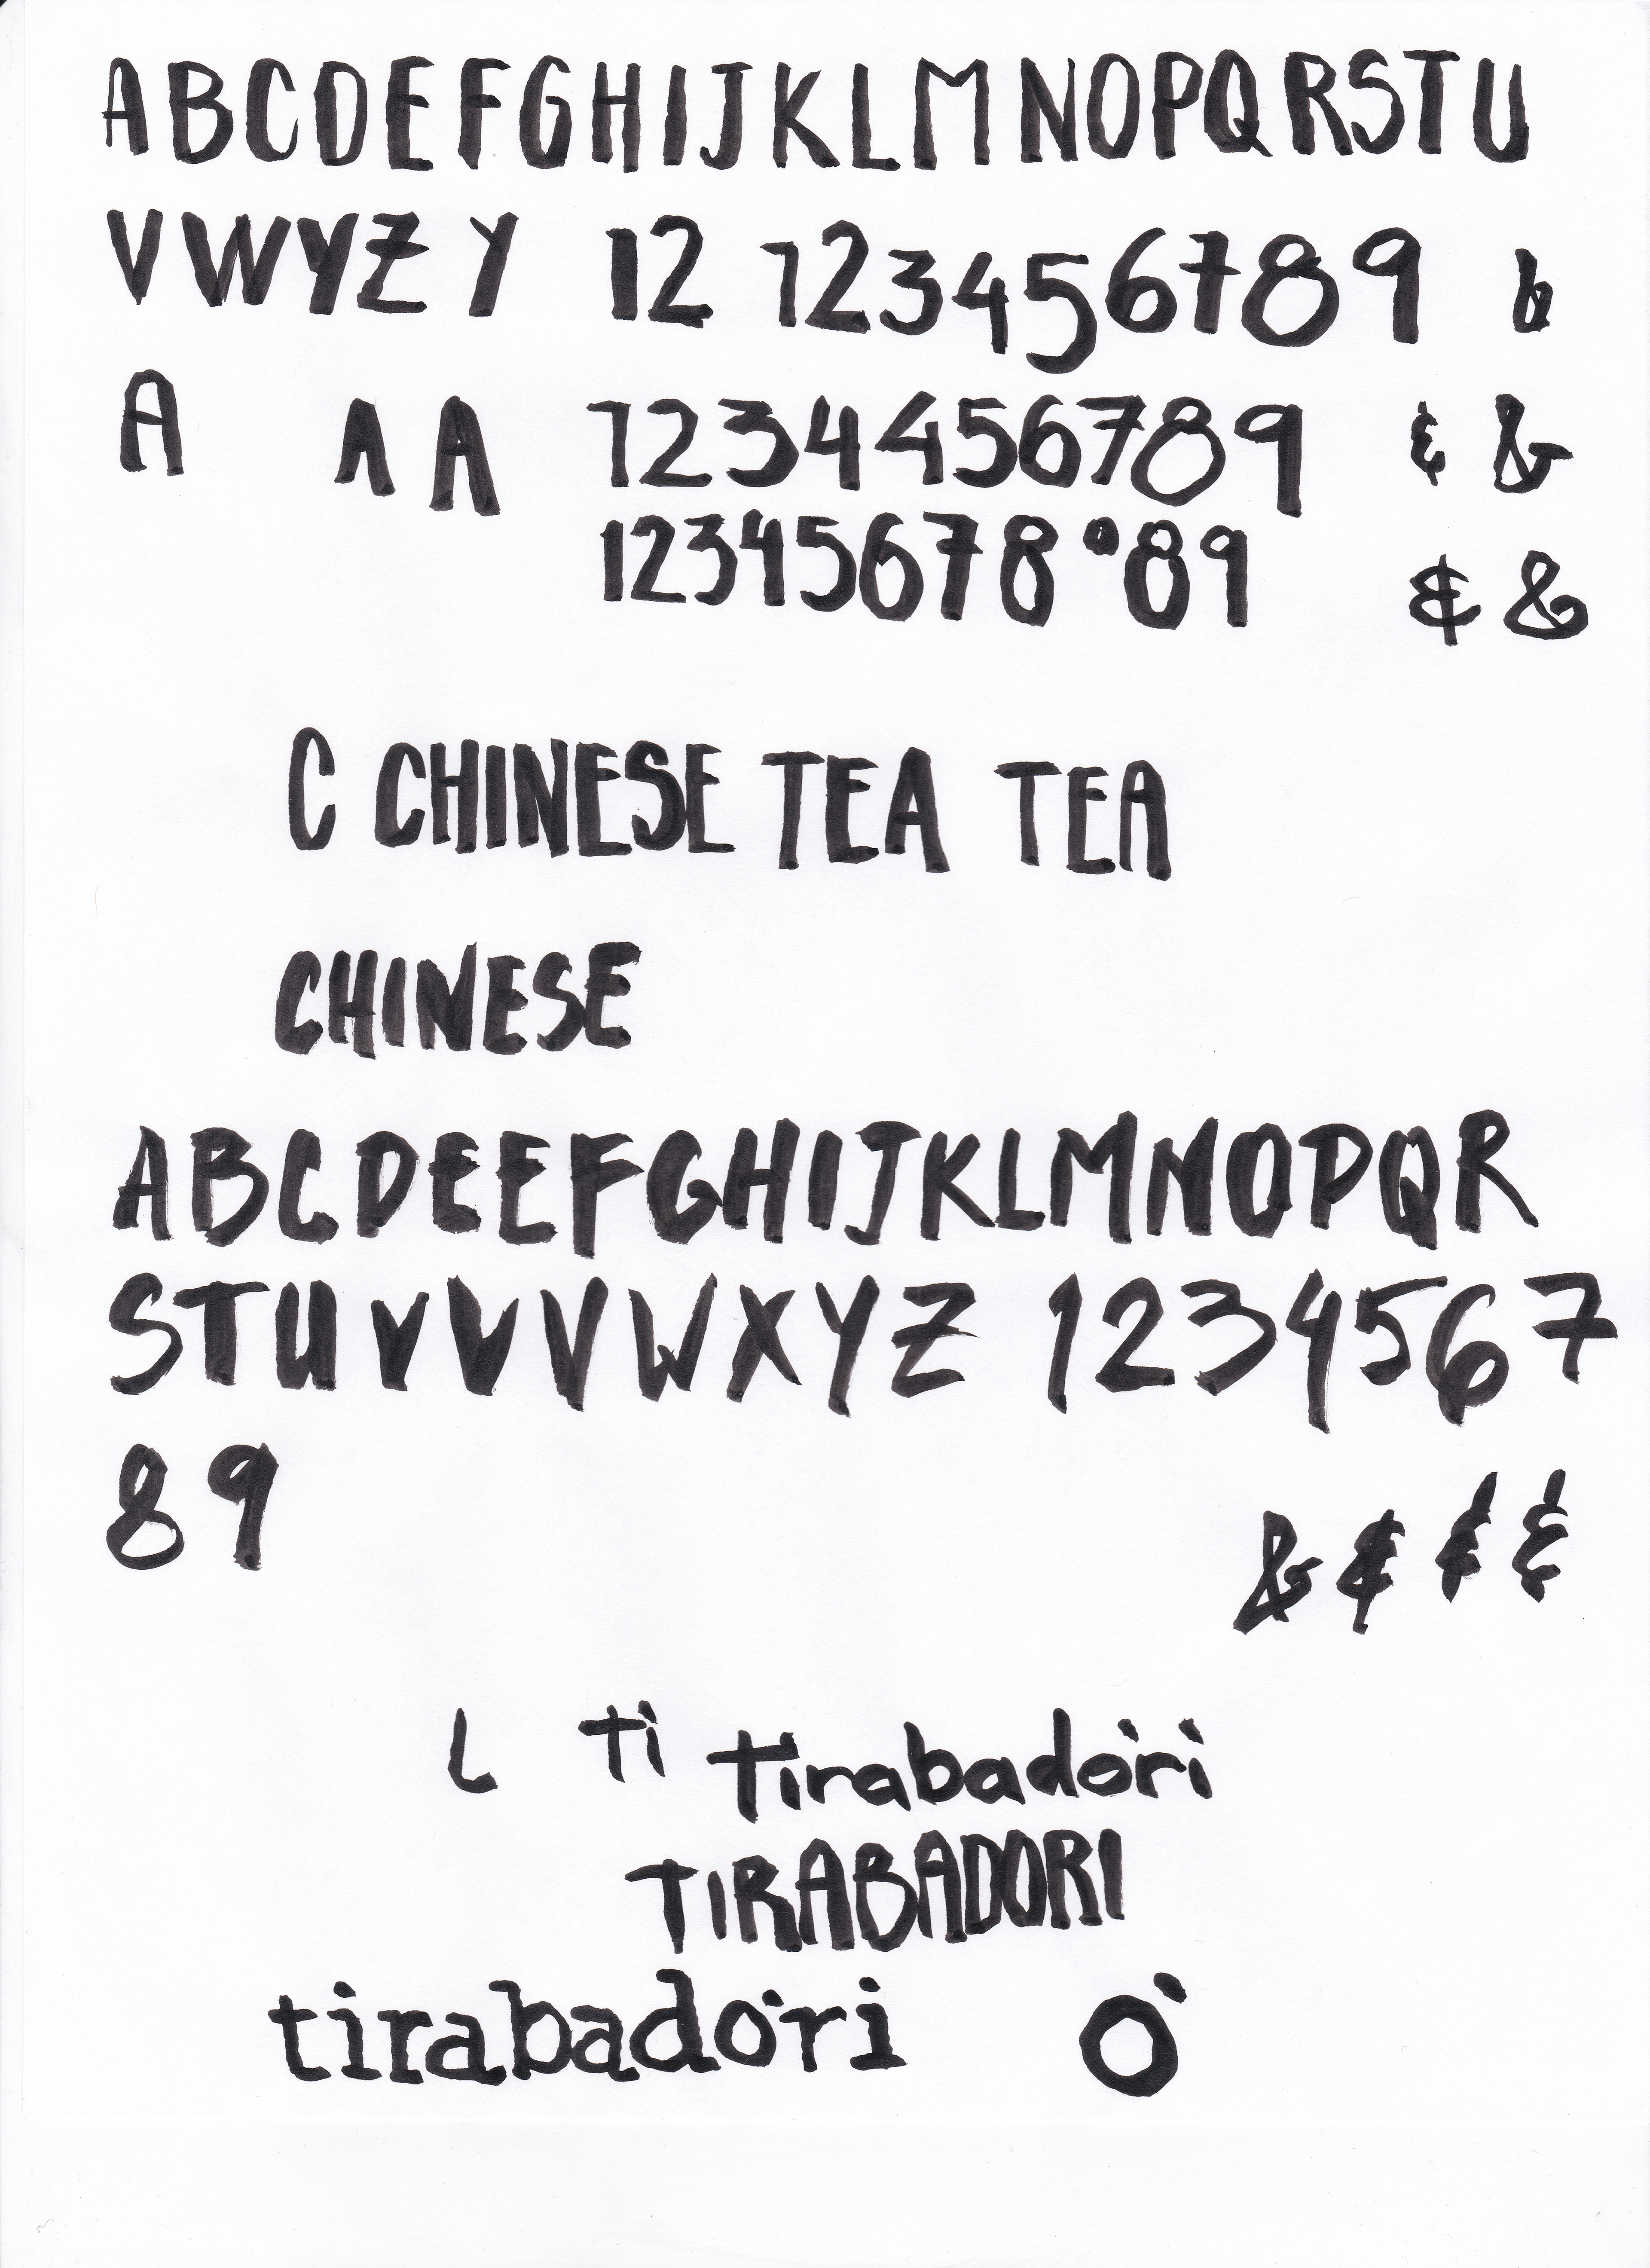 ABCDEFGHIJKLMNOPQRSTU
VWYZ Y 12 123456789 b
A A A 1234456789 & &
12345678 89 & &
C CHINESE TEA TEA
CHINESE
ABCDEEFGHIJKLMNOPQR
STUVVVWXYZ 1234567
89
& & & &
L Ti Tirabadòri
TIRABADORI
tirabadòri Ò